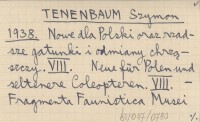 TENENBAUM Szymon
1938. Nowe dla Polski oraz rzad-
sze gatunki i odmiany chrzą-
szczy. VIII. Neue für Polen und
seltenere Coleopteren. VIII.
Fragmenta Faunistica Musei